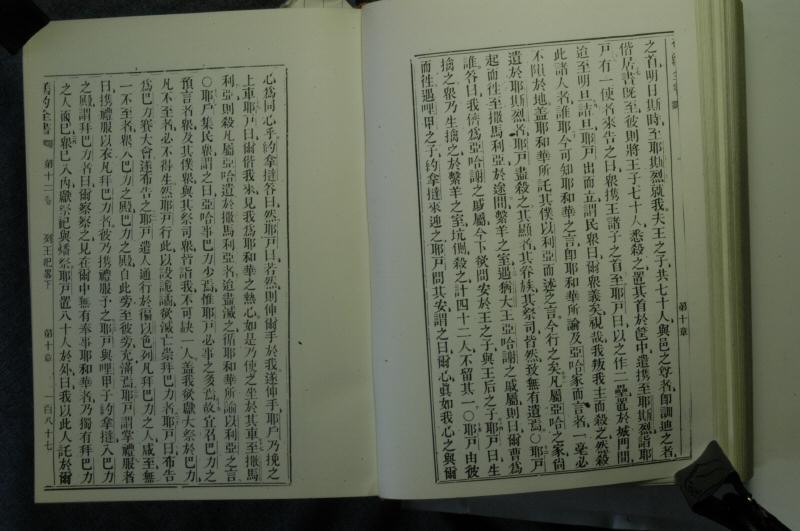 之首明日斯時至耶斯烈就我夫王之子共七十人與邑之尊者卽訓迪之者
偕居書既至彼則將王子七十人悉殺之置其首於筐中遣携至耶斯烈詣耶
戶有一使者來告之曰衆携王諸子之首至耶戶曰以之作二壘置於城門間
迨至明旦詰旦耶戶出而立謂民衆曰爾衆義矣視哉我叛我主而殺之然殺
此諸人者誰耶今可知耶和華之言卽耶和華所諭及亞哈家而言者一毫必
不隕於地蓋耶和華所託其僕以利亞而述之言今行之矣凡屬亞哈之家尙
遺於耶斯烈者耶戶盡殺之其顯者其眷族其祭司皆然致無有遺焉〇耶戶
起而徃至撒馬利亞於途間繫羊之室遇猶大王亞哈謝之戚屬則曰爾曹爲
誰答曰我儕爲亞哈謝之戚屬今下欲問安於王之子與王后之子耶戶曰生
擒之衆乃生擒之於繫羊之室坑側殺之計四十二人不留其一〇耶戶由彼
而徃遇哩甲之子約拿撻來迎之耶戶問其安謂之曰爾心眞如我心之與爾
第十章
心爲同心乎約拿撻答曰然耶戶曰若然則伸爾手於我遂伸手耶戶乃挽之
上車耶戶曰爾偕我來見我爲耶和華之熱心如是乃使之坐於其車至撒馬
利亞則殺凡屬亞哈遺於撒馬利亞者迨盡滅之循耶和華所諭以利亞之言
〇耶戶集民衆謂之曰亞哈事巴力少焉惟耶戶必事之多焉故宜召巴力之
預言者衆及其僕衆與其祭司衆皆詣我不可缺一人蓋我欲獻大祭於巴力
凡不至者必不得生然耶戶行此以設詭譎欲滅亡崇拜巴力者耶戶曰布告
爲巴力賽大會遂布告之耶戶遣人通行於徧以色列凡拜巴力之人咸至無
一不至者衆入巴力之殿巴力之殿自此旁至彼旁充滿焉耶戶謂掌禮服者
曰携禮服以衣凡拜巴力者彼乃携禮服予之耶戶與哩甲子約拿撻入巴力
之殿謂拜巴力者曰爾察察之見在爾中無有奉事耶和華者乃獨有拜巴力
之人而已衆已入內獻祭祀與燔祭耶戶置八十人於外曰我以此人託於爾
舊約全書 第十二卷 列王紀畧下 第十章 一百八十七